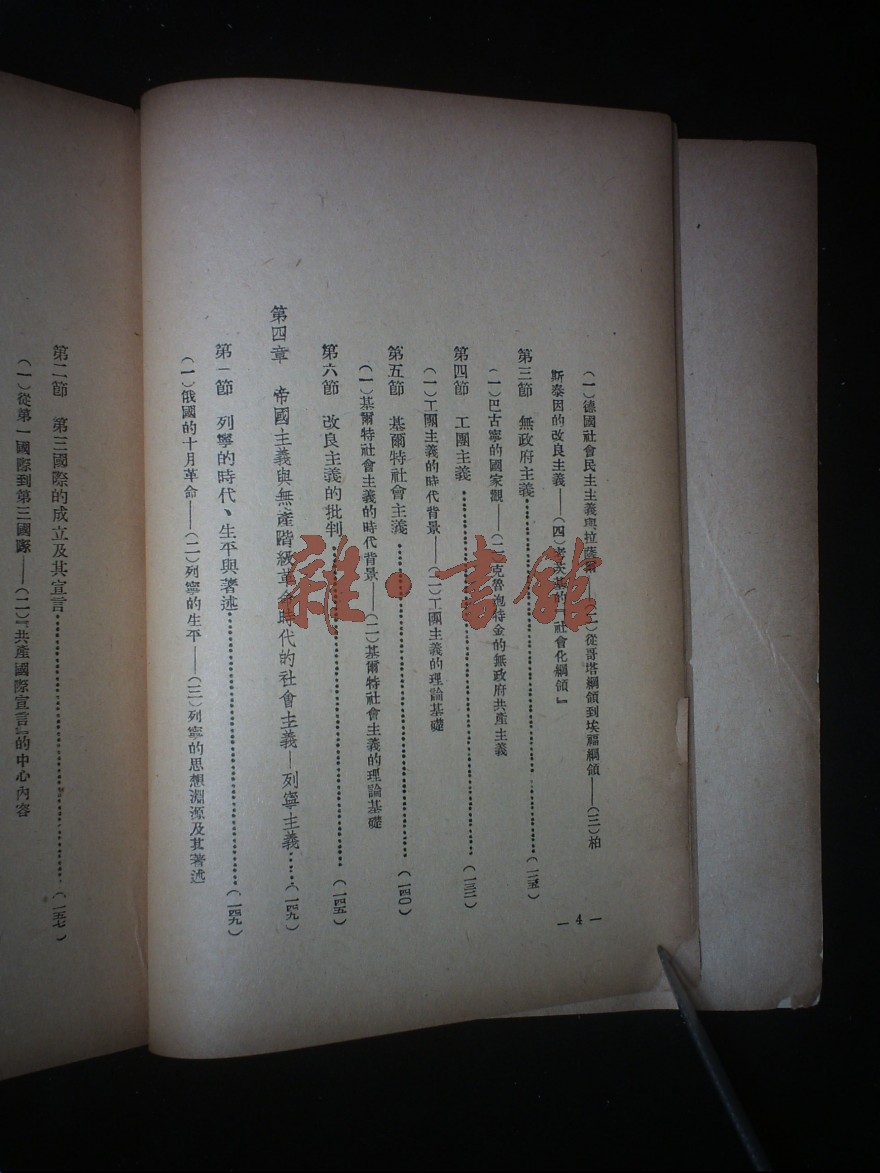 （一）德國社會民主主義與拉薩爾——（二）從哥塔綱領到埃福綱領——（三）柏
斯泰因的改良主義——（四）考茨基的『社會化綱領』
第三節　無政府主義……（一二五）
（一）巴古寧的國家觀——（二）克魯泡特金的無政府共產主義
第四節　工團主義……（一三二）
（一）工團主義的時代背景——（二）工團主義的理論基礎
第五節　基爾特社會主義……（一四〇）
（一）基爾特社會主義的時代背景——（二）基爾特社會主義的理論基礎
第六節　改良主義的批判……（一四五）
第四章　帝國主義與無產階級革命時代的社會主義—列寧主義……（一四九）
第一節　列寧的時代、生平與著述……（一四九）
（一）俄國的十月革命——（二）列寧的生平——（三）列寧的思想淵源及其著述
— 4 —
第二節　第三國際的成立及其宣言……（一五七）
（一）從第一國際到第三國際——（二）『共產國際宣言』的中心內容
雜·書館